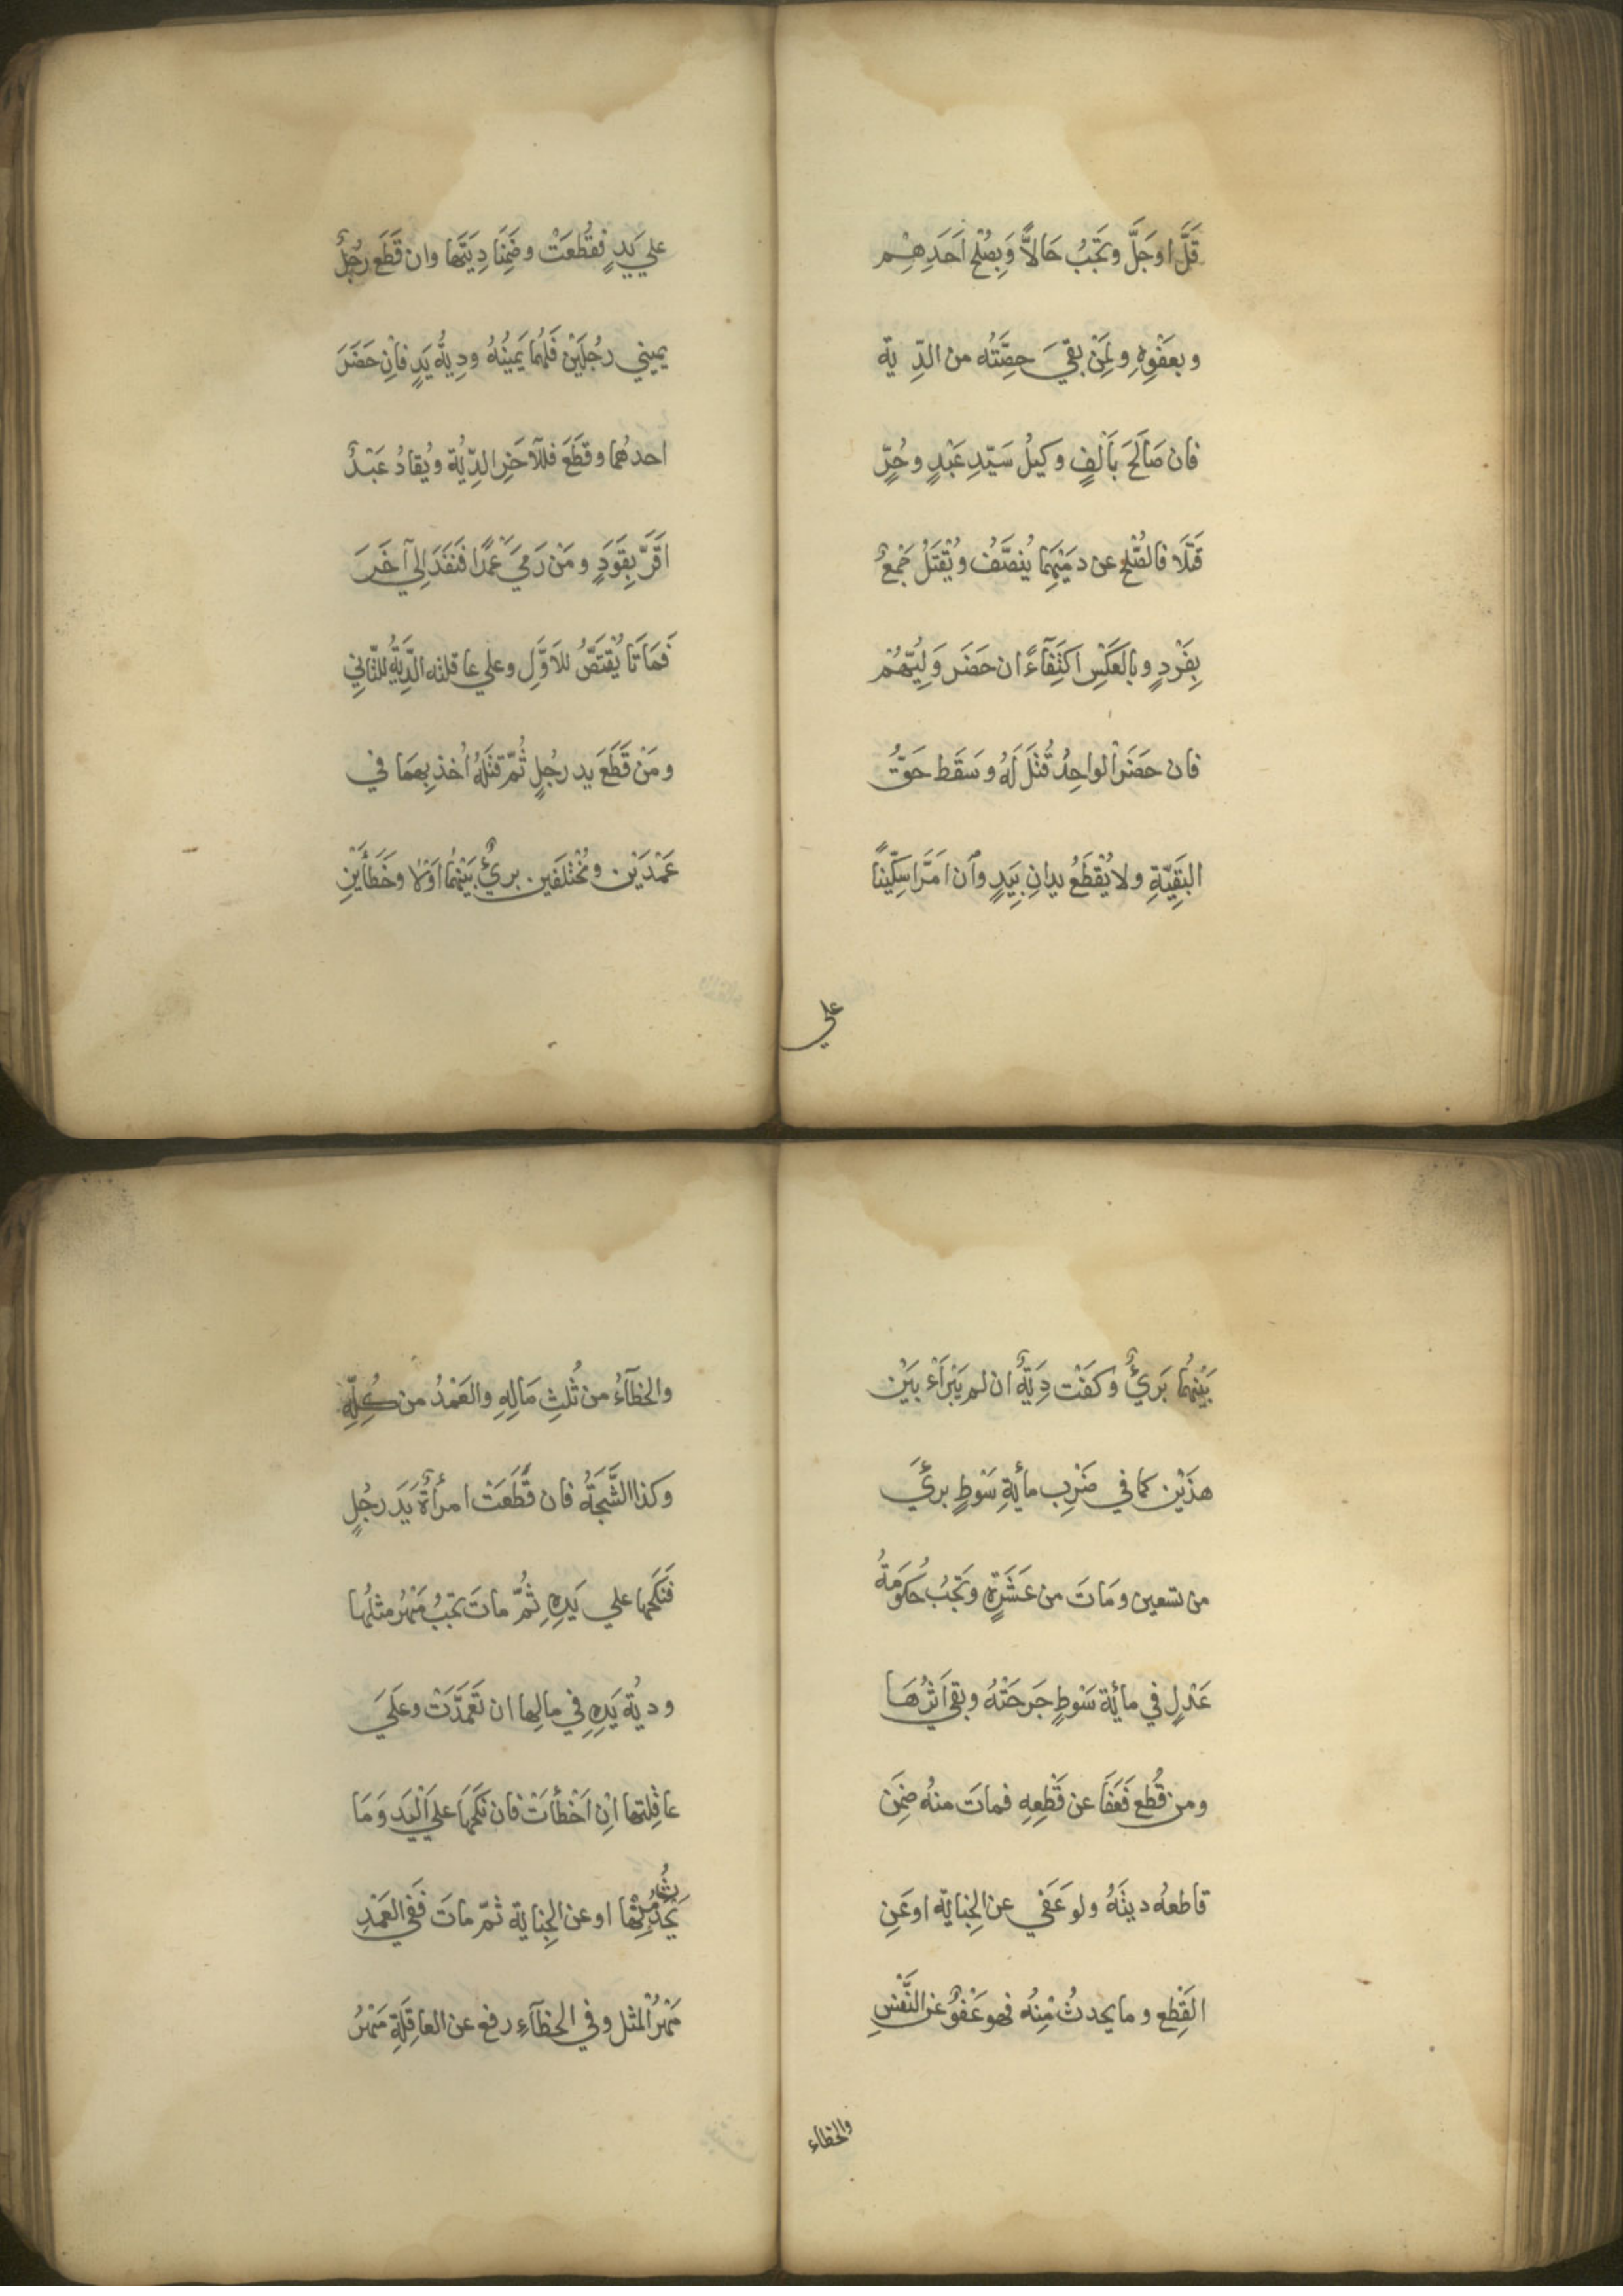 قَلَّ اوجَلَّ وتَجِبُ حَالاًّ وَبِصُلْحِ اَحَدِهِم
وبعَفْوِهِ ولِمَنْ بَقِيَ حصَّتُه من الدِّ ية
فان صَالَحَ بأَلْفٍ وكيلُ سَيِّدِ عَبْدٍ وحُرٍّ
قَتَلَا فالصُّلْحُ عن دمَيْهِمَا يُنصَّفُ ويُقْتَلُ جَمْعٌ
بِفَرْدٍ وبالعَكْسِ اكتِفَآءً ان حضَر وَلِيُّهُمْ
فان حضَرَ الواحِدُ قُتِلَ لَهُ وسَقَط حَقُّ
البَقِيَّةِ ولا يُقْطَعُ يدانِ بِيَدٍ وَان اَمَرَّا سِكِّيناً
علي
علي يَدٍ فقُطعَتْ وضَمِنَا دِيَتَهَا وان قَطَع رجُلٌ
يميني رجُلَيْنِ فَلَهُمَا يَمِينُهُ ودِيةُ يَدٍ فاِن حَضَرَ
احدهُما وقطَعَ فللآخَرِ الدِّيَةُ ويُقادُ عَبْدٌ
اَقَرَّ بِقَوَدٍ ومَنْ رَمَيَ عَمْدًا فَنفَذَ اِلي آخَرَ
فَمَاتَا يُقْتَصُّ للاَوَّلِ وعلي عاقلته الدِّيَةُ للثَّانِي
ومَنْ قَطَعَ يد رجُلٍ ثُمّ قتَلَهُ اُخذ بِهمَا في
عَمْدَيْن ومُخْتلَفَين برئٌ بَيْنهُمَا اَوْلا وخَطأَيْنِ
بَيْنهُمَا بَرئٌ وكفَت دِيَةٌ ان لم يَبْرَاْء بَيْن
هذَيْن كما في ضَرْبِ مأية سَوْطٍ بَرئَ
من تسعين ومَاتَ من عَشَرَةٍ وتَجِبُ حكُومَةُ
عَدْلٍ في مائة سَوْطٍ جَرحَتْهُ وبقي اَثرُهَا
ومن قُطع فَعَفَا عن قَطعِهِ فماتَ منهُ ضَمِنَ
قاطعهُ ديتَهُ ولو عَفي عن الجِنايَة او عَنِ
القَطعِ وما يحدثُ مِنْهُ فهو عَفْوٌ عن النَّفْسِ
والخطاء
والخطآءُ من ثُلثِ مَالِهِ والعَمْدُ من كُلِّهِ
وكذا الشَّجَّةُ فان قَطَعَتْ امرأةٌ يَدَ رجُلٍ
فَنكَحَها علي يَدِهِ ثُمَّ ماتَ تجبُ مَهْرُ مثلِها
وديَةُ يَدِهِ في مالِها ان تعَمَّدَتْ وعَلَيَ
عاقِلتها اِنْ اَخْطأَتْ فان نَكَحَهَا علي الْيَد وَمَا
يَحْدُثُ مِنْهَا او عن الجِناية ثمّ ماتَ فَفي العَمْدِ
مَهْرُ الْمثل وفي الخطآءِ رفع عن العاقِلَةِ مَهْرُ